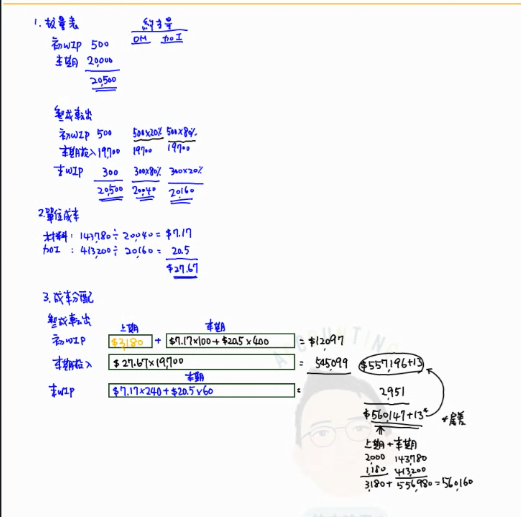 1. 數量表 約當量
DM 加工
初WIP 500
本期 20,000
20,500
完成轉出
初WIP 500 500×20% 500×80%
本期投入 19,700 19,700 19,700
末WIP 300 300×80% 300×20%
20,500 20,040 20,160
2. 單位成本
材料: 143,780 ÷ 20,040 = $7.17
加工: 413,200 ÷ 20,160 = 20.5
$27.67
3. 成本分配
完成轉出 上期 本期
初WIP $3,180 + $7.17×100 + $20.5×400 = $12,097
本期投入 $27.67×19,700 = 545,099 $557,196+13
本期
末WIP $7.17×240 + $20.5×60 = 2,951
$560,147+13* *尾差
上期 + 本期
2,000 143,780
1,180 413,200
3,180 + 556,980 = 560,160